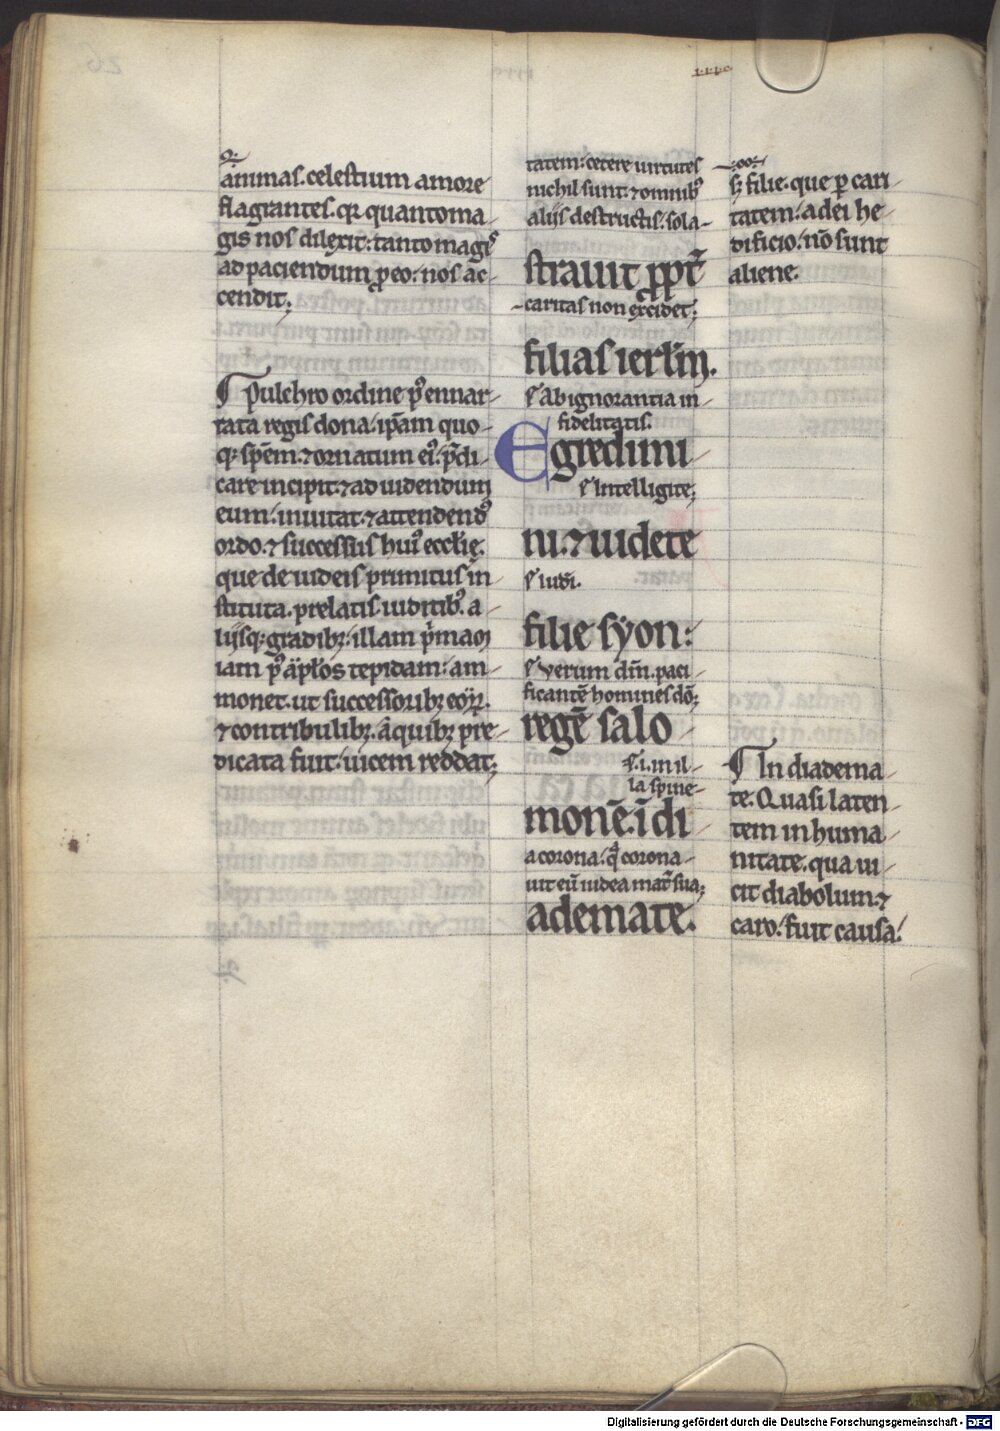 animas. celestium amore
flagrantes. qr quanto ma
gis nos dilexit: tanto magis
ad paciendum pro eo: nos ac
cendit;
Pulchro ordine postquam ennar
rata regis dona: ipsam quo
que spem. ⁊ ornatum eius. predi
care incipit. ⁊ ad uidendum
eum: inuitat. ⁊ attendendus
ordo. ⁊ successus huius ecclesie.
que de iudeis primitus in
stituta. prelatis. uirtutibus. a
lijsque gradibus: illam primam
iam post apostolos tepidam: am
monet. ut successoribus eorum.
⁊ contribulibus. a quibus pre
dicata fuit: uicem reddat;
tatem: cetere uirtutes
nichil sunt: ⁊ omnibus
alijs destructis: sola
strauit propter
caritas non excidet;
filias ierlm.
s ab ignorantia in
fidelitatis.
Egredimi
s intelligite;
ni. ⁊ uidete
s iudei.
filie syon:
s verum dominum. paci
ficantem homines deo;
regem salo
s. i. in il
la spine
monem. in di
a corona: qua corona
uit eum iudea mater sua;
ademate.
s filie. que per cari
tatem: a dei he
dificio: non sunt
aliene.
In diadema
te. Quasi laten
tem in huma
nitate. qua ui
cit diabolum. ⁊
caro: fuit causa:
Digitalisierung gefördert durch die Deutsche Forschungsgemeinschaft - DFG